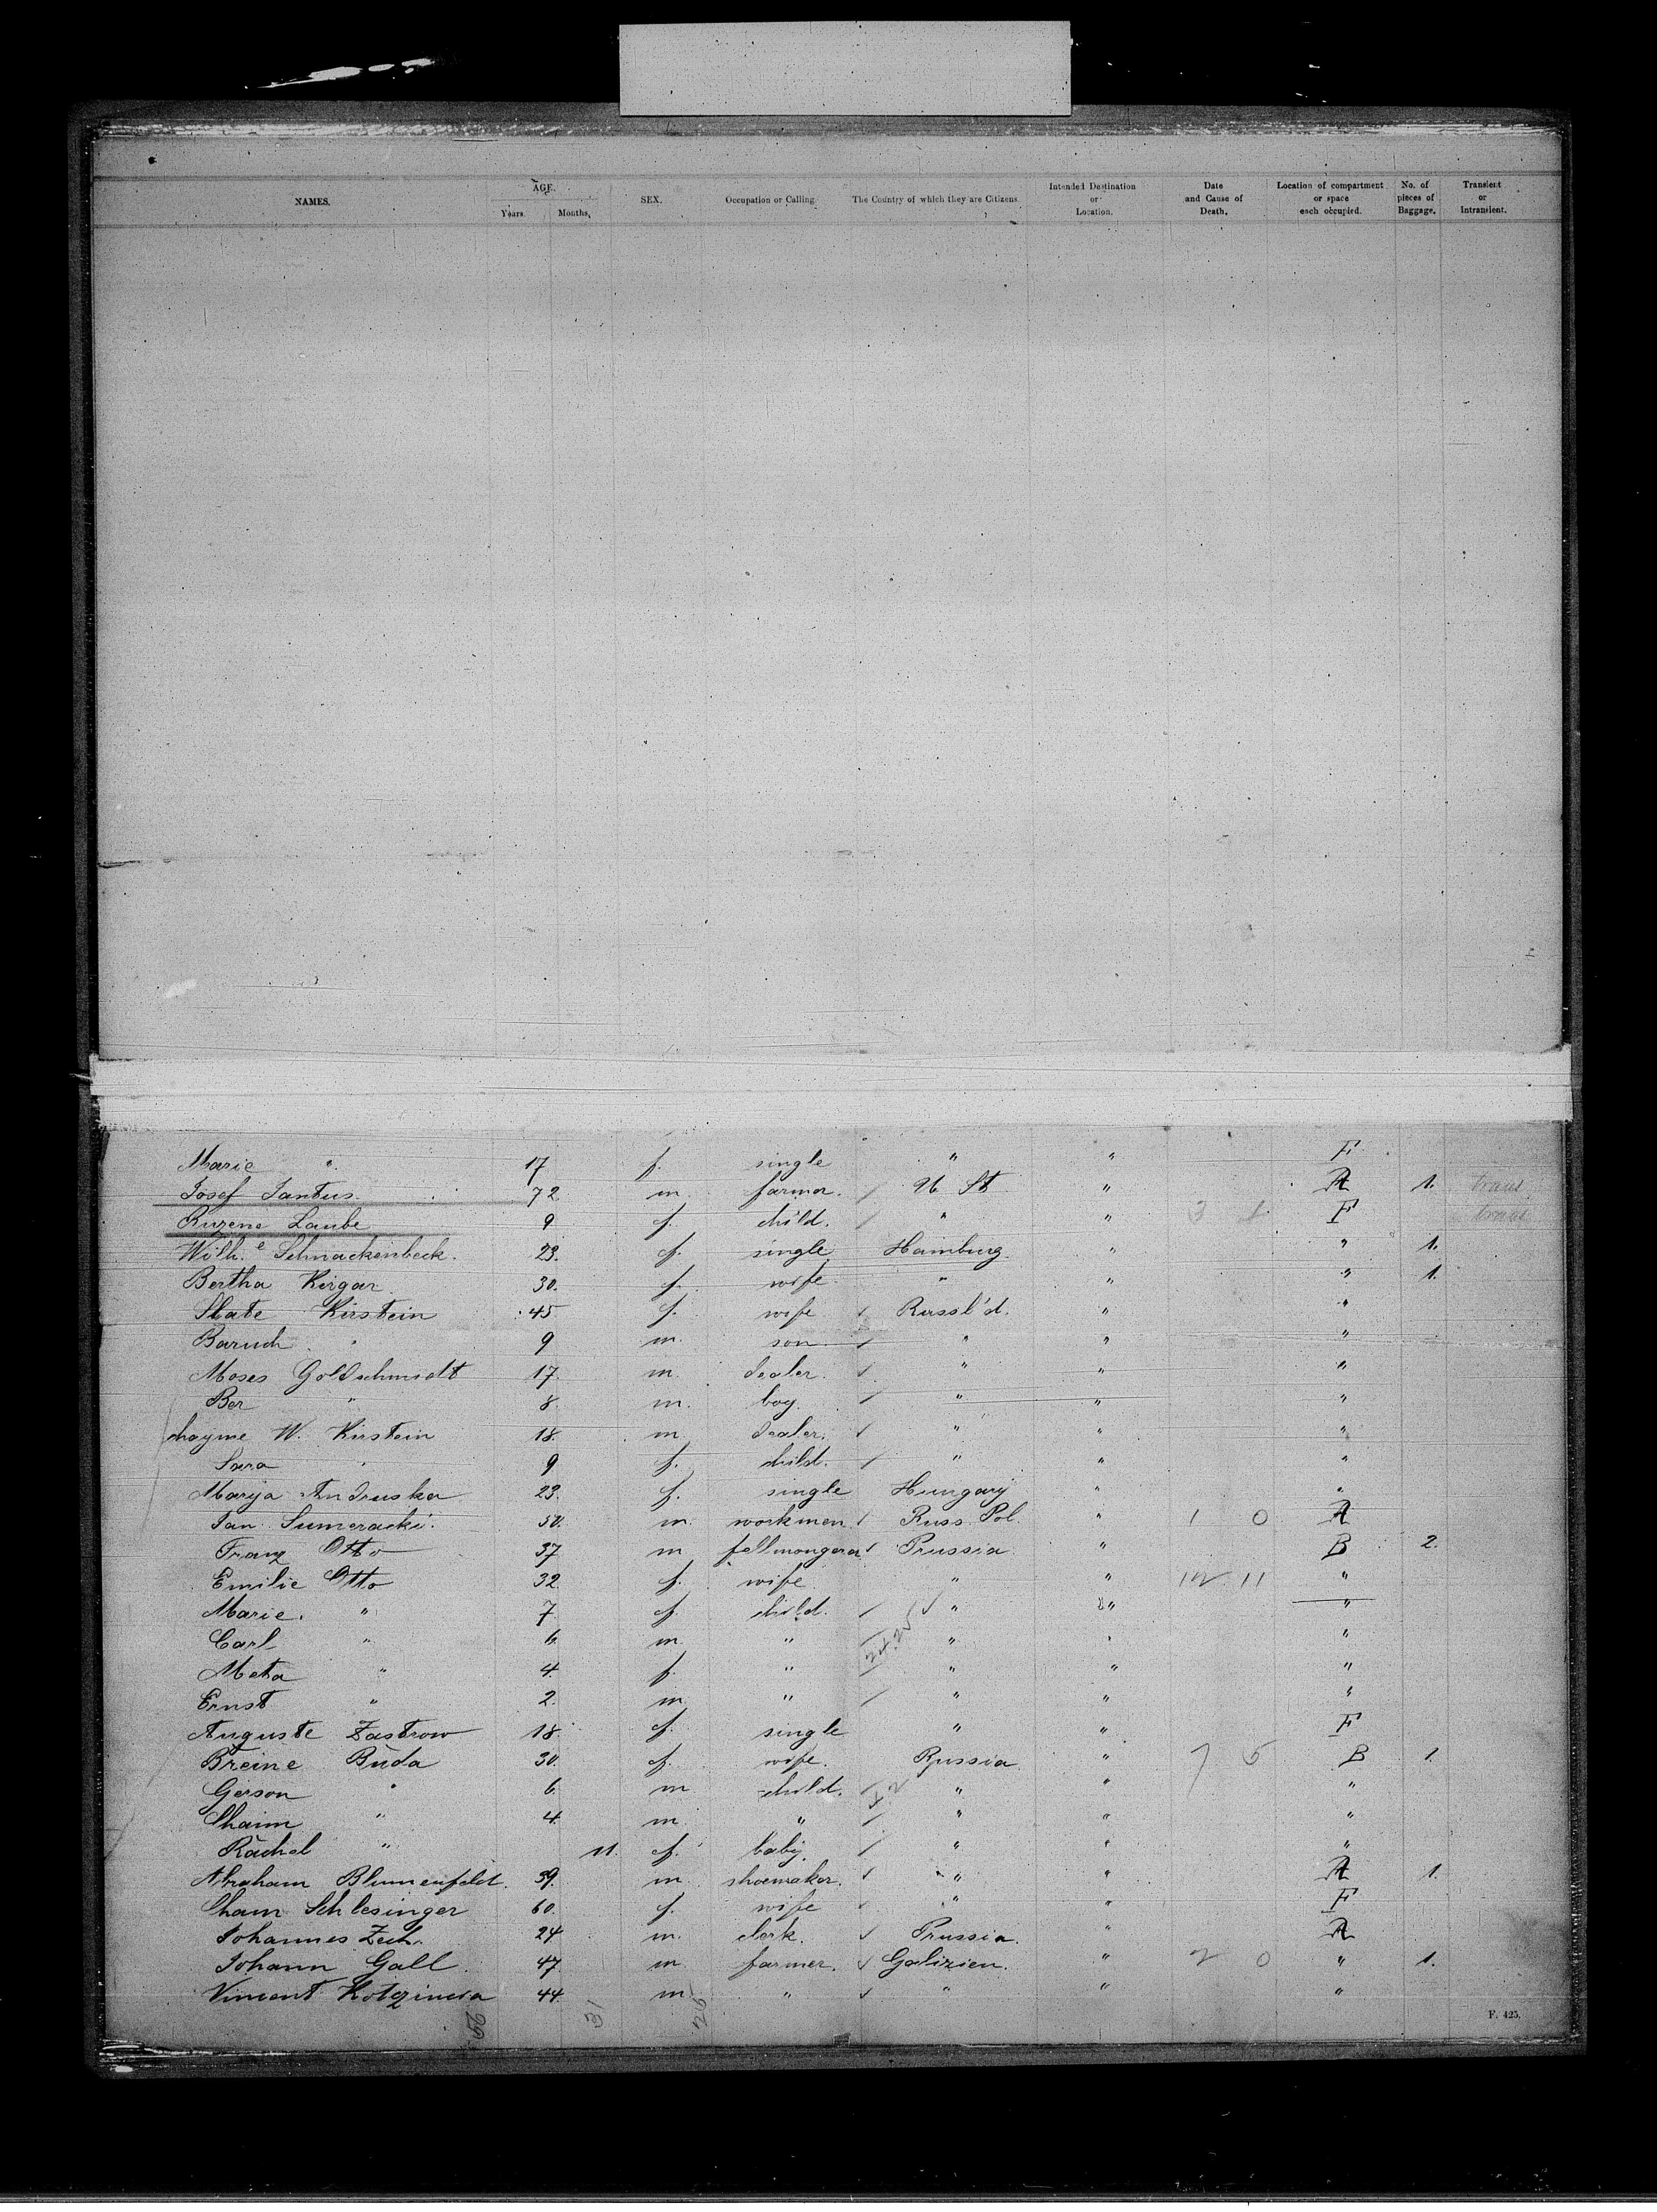 NAMES. AGE. Years. Months. SEX. Occupation or Calling. The Country of which they are Citizens. Intended Destination or Location. Date and Cause of Death. Location of compartment or space each occupied. No. of pieces of Baggage. Transient or Intransient.
Marie " 17 f. single " " F
Josef Jantus. 72 m. farmer. / U. St. " A 1. trans
Ruzena Laube 9 f. child. / " " 3 1 F trans
Wilh.e Schnackenbeck. 23. f. single Hamburg " " 1.
Bertha Kirgar 30. f. wife " " " 1.
Slate Kirstein 45 f. wife / Russl'd. " "
Baruch " 9 m. son / " " "
Moses Goldschmidt 17. m. dealer. / " " "
Ber " 8. m. boy. / " " "
Chayme W. Kirstein 18. m. dealer. / " " "
Sara " 9 f. child. / " " "
Marija Andruska 23. f. single Hungary " "
Jan Sumeracki. 50. m. workmen / Russ. Pol. " 1 0 A
Franz Otto 37 m. fellmongerer / Prussia. " B 2.
Emilie Otto 32. f. wife " " 12 11 "
Marie. " 7. f. child. / " " "
Carl " 6. m. " / " " "
Meta " 4. f. " / " " "
Ernst " 2. m. " / " " "
Auguste Zastrow 18. f. single " " F
Breine Buda 30. f. wife. Russia " 7 5 B 1.
Gerson " 6. m. child. / " " "
Chaim " 4. m. " / " " "
Rachel " 11. f. baby. / " " "
Abraham Blumenfeldt. 39. m. shoemaker. / " " A 1.
Cham Schlesinger 60. f. wife / " " F
Johannes Zech. 24 m. clerk. / Prussia. " A
Johann Gall. 47 m. farmer. / Galizien. " 2 0 " 1.
Vincent 44. m. " / " " "
31 26
F. 425.